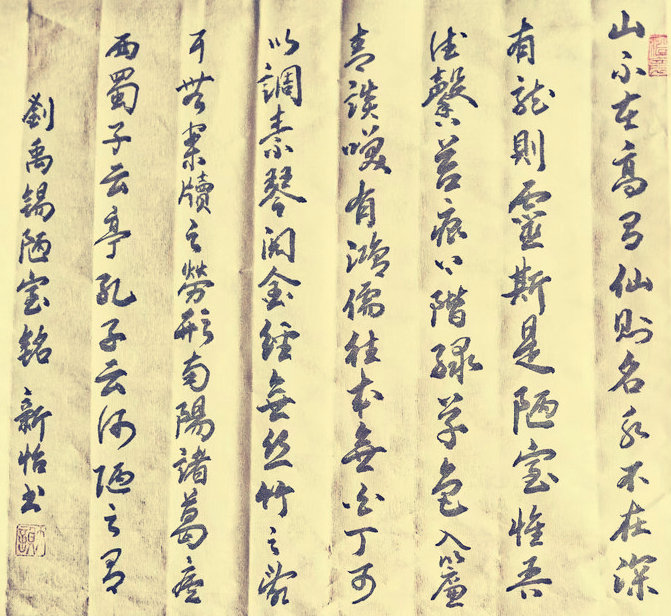 山不在高有仙则名水不在深
有龙則靈斯是陋室惟吾
德馨苔痕上階綠草色入簾
青談咲有鴻儒往来無白丁可
以調素琴閱金經無丝竹之亂
耳無案牘之勞形南陽諸葛廬
西蜀子云亭孔子云何陋之有
劉禹錫陋室銘 新怡书